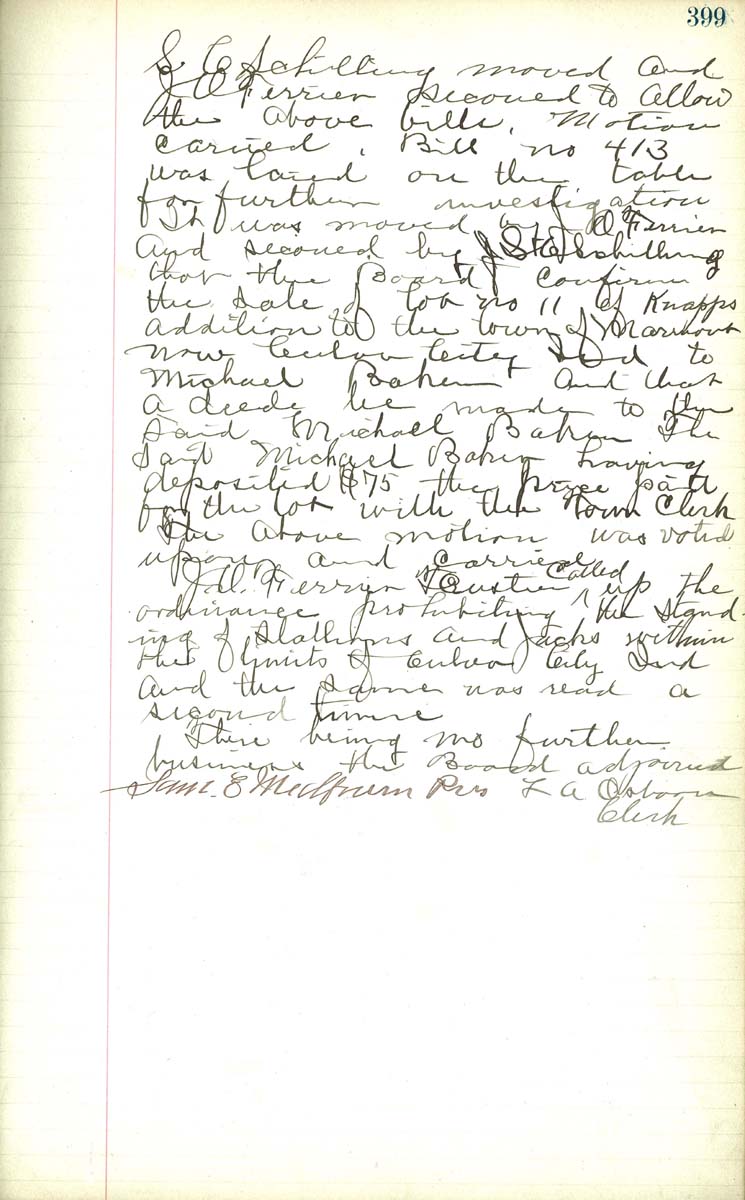 399
S C Schilling moved and
J O Ferrier seconed to allow
the above bills, Motion
carried, Bill no 413
was laied on the table
for further investigation
It was moved by J O Ferrier
and seconed by S C Schilling
that the Board confirm
the sale of lot no 11 of Knapps
addition to the town of Marmont
now Culver City Ind to
Michael Baker and that
a deede be made to the
said Michael Baker The
said Michael Baker having
deposited $75 the price paid
for the lot with the Town Clerk
The above motion was voted
upon and carried
J O. Ferrier Trustee called up the
ordinance prohibiting the stand-
ing of Stallions and Jacks within
the limits of Culver City Ind
and the same was read a
second time
There being no further
business the Board adjorned
Sam. E Medbourn Pres L A Osborn
Clerk